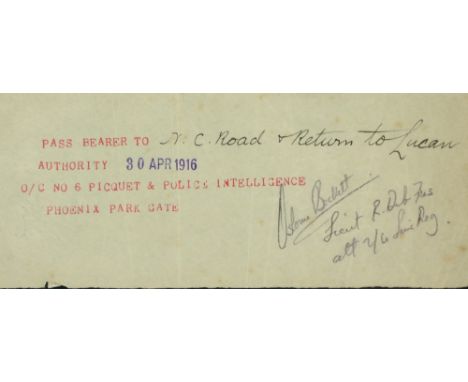 PASS BEARER TO N. C. Road & Return to Lucan
AUTHORITY 30 APR 1916
O/C NO 6 PICQUET & POLICE INTELLIGENCE
PHOENIX PARK GATE
Lieut R. Dub Fus
att 2/6 Reg.